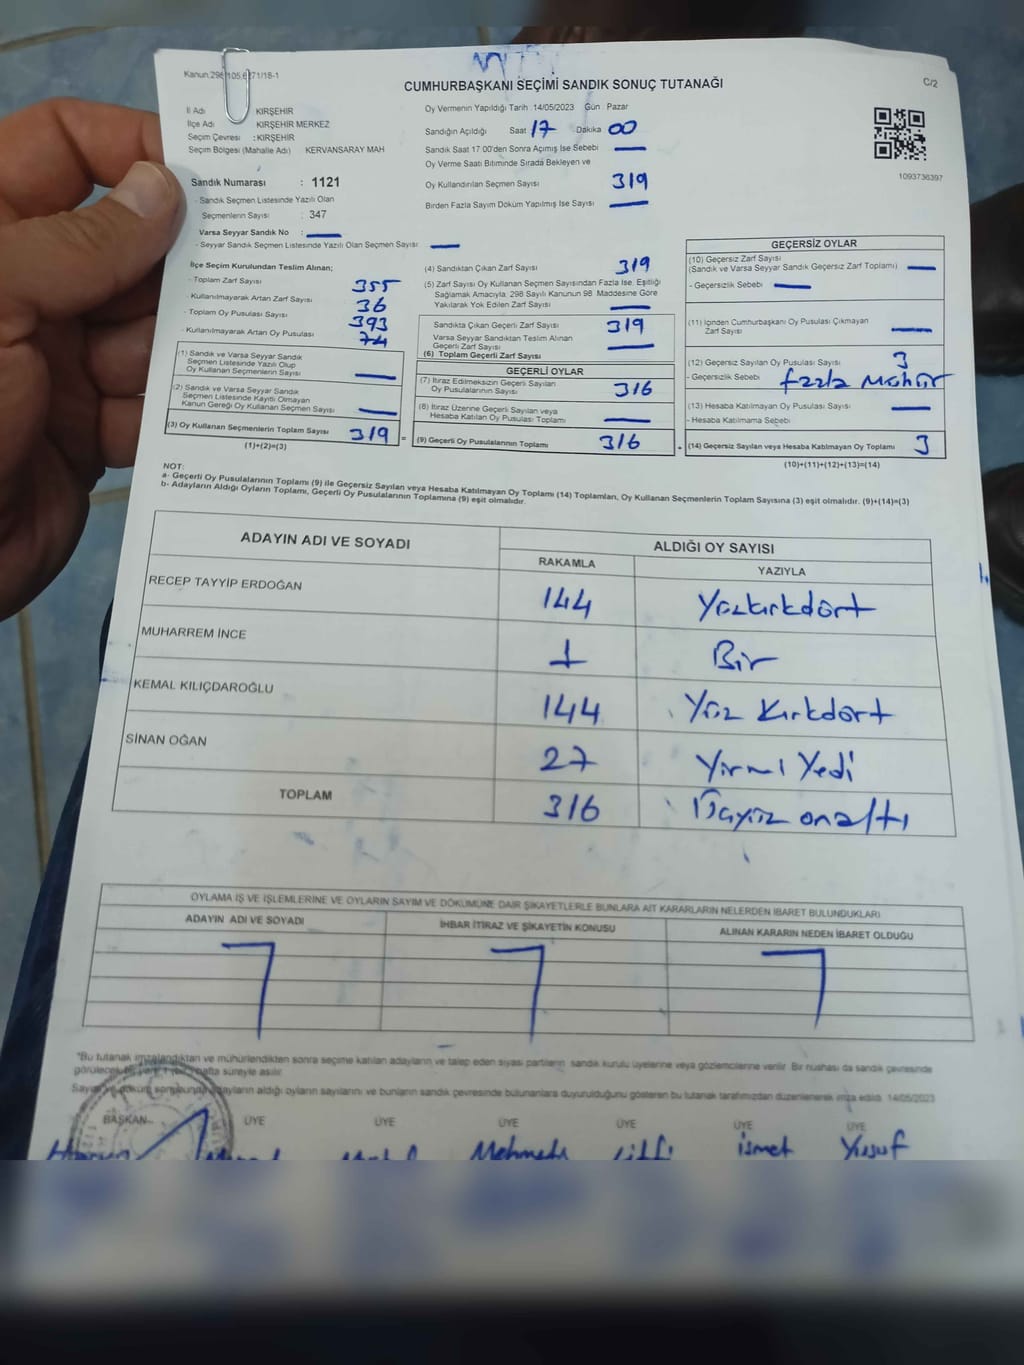 Kanun.298/105,6271/18-1
C/2
CUMHURBAŞKANI SEÇİMİ SANDIK SONUÇ TUTANAĞI
İl Adı KIRŞEHİR
İlçe Adı KIRŞEHİR MERKEZ
Seçim Çevresi : KIRŞEHİR
Seçim Bölgesi (Mahalle Adı) KERVANSARAY MAH
Oy Vermenin Yapıldığı Tarih :14/05/2023 Gün : Pazar
Sandığın Açıldığı Saat 17 Dakika 00
Sandık Saat 17.00'den Sonra Açımış İse Sebebi
Oy Verme Saati Bitiminde Sırada Bekleyen ve
Oy Kullandırılan Seçmen Sayısı 319
Birden Fazla Sayım Döküm Yapılmış İse Sayısı
1093736397
Sandık Numarası : 1121
- Sandık Seçmen Listesinde Yazılı Olan
Seçmenlerin Sayısı : 347
Varsa Seyyar Sandık No :
- Seyyar Sandık Seçmen Listesinde Yazılı Olan Seçmen Sayısı :
İlçe Seçim Kurulundan Teslim Alınan;
- Toplam Zarf Sayısı 355
- Kullanılmayarak Artan Zarf Sayısı 36
- Toplam Oy Pusulası Sayısı 393
- Kullanılmayarak Artan Oy Pusulası 74
(1) Sandık ve Varsa Seyyar Sandık
Seçmen Listesinde Yazılı Olup
Oy Kullanan Seçmenlerin Sayısı
(2) Sandık ve Varsa Seyyar Sandık
Seçmen Listesinde Kayıtlı Olmayan
Kanun Gereği Oy Kullanan Seçmen Sayısı
(3) Oy Kullanan Seçmenlerin Toplam Sayısı 319
(1)+(2)=(3)
(4) Sandıktan Çıkan Zarf Sayısı 319
(5) Zarf Sayısı Oy Kullanan Seçmen Sayısından Fazla İse, Eşitliği
Sağlamak Amacıyla, 298 Sayılı Kanunun 98. Maddesine Göre
Yakılarak Yok Edilen Zarf Sayısı
Sandıkta Çıkan Geçerli Zarf Sayısı 319
Varsa Seyyar Sandıktan Teslim Alınan
Geçerli Zarf Sayısı
(6) Toplam Geçerli Zarf Sayısı
GEÇERLİ OYLAR
(7) İtiraz Edilmeksizin Geçerli Sayılan
Oy Pusulalarının Sayısı 316
(8) İtiraz Üzerine Geçerli Sayılan veya
Hesaba Katılan Oy Pusulası Toplamı
= (9) Geçerli Oy Pusulalarının Toplamı 316
GEÇERSİZ OYLAR
(10) Geçersiz Zarf Sayısı
(Sandık ve Varsa Seyyar Sandık Geçersiz Zarf Toplamı)
- Geçersizlik Sebebi
(11) İçinden Cumhurbaşkanı Oy Pusulası Çıkmayan
Zarf Sayısı
(12) Geçersiz Sayılan Oy Pusulası Sayısı 3
- Geçersizlik Sebebi fazla Mühür
(13) Hesaba Katılmayan Oy Pusulası Sayısı
- Hesaba Katılmama Sebebi
+ (14) Geçersiz Sayılan veya Hesaba Katılmayan Oy Toplamı 3
(10)+(11)+(12)+(13)=(14)
NOT:
a- Geçerli Oy Pusulaları Toplamı (9) ile Geçersiz Sayılan veya Hesaba Katılmayan Oy Toplamı (14) Toplamları, Oy Kullanan Seçmenlerin Toplam Sayısına (3) eşit olmalıdır. (9)+(14)=(3)
b- Adayların Aldığı Oyların Toplamı, Geçerli Oy Pusulalarının Toplamına (9) eşit olmalıdır.
ADAYIN ADI VE SOYADI ALDIĞI OY SAYISI
RAKAMLA YAZIYLA
RECEP TAYYİP ERDOĞAN 144 Yüzkırkdört
MUHARREM İNCE 1 Bir
KEMAL KILIÇDAROĞLU 144 Yüz kırkdört
SİNAN OĞAN 27 Yirmi Yedi
TOPLAM 316 Üçyüz onaltı
OYLAMA İŞ VE İŞLEMLERİNE VE OYLARIN SAYIM VE DÖKÜMÜNE DAİR ŞİKAYETLERLE BUNLARA AİT KARARLARIN NELERDEN İBARET BULUNDUKLARI
ADAYIN ADI VE SOYADI İHBAR İTİRAZ VE ŞİKAYETİN KONUSU ALINAN KARARIN NEDEN İBARET OLDUĞU
"Bu tutanak imzalandıktan ve mühürlendikten sonra seçime katılan adayların ve talep eden siyasi partilerin sandık kurulu üyelerine veya gözlemcilerine verilir. Bir nüshası da sandık çevresinde
hafta süreyle asılır.
adayların aldığı oyların sayılarını ve bunların sandık çevresinde bulunanlara duyurulduğunu gösteren bu tutanak tarafımızdan düzenlenerek imza edildi. 14/05/2023
BAŞKAN ÜYE ÜYE ÜYE ÜYE ÜYE ÜYE
Mehmet ismet Yusuf